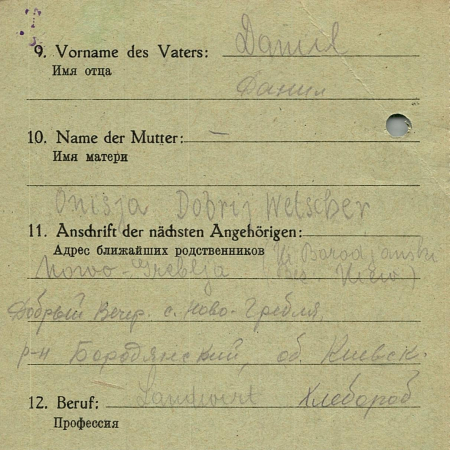 9. Vorname des Vaters: Daniel
Имя отца
Данил
10. Name der Mutter: –
Имя матери
Onisja Dobrij Wetscher
11. Anschrift der nächsten Angehörigen:
Адрес ближайших родственников
Nowo-Greblja Borodjanski Kiew)
Добрый Вечер с. Ново-Гребля
р-н Бородянский, об. Киевск.
12. Beruf: Landwirt Хлебороб
Профессия